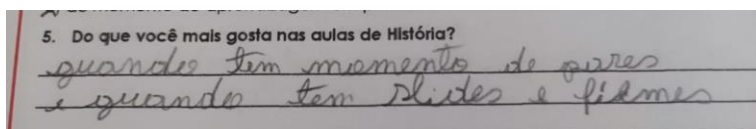 5. Do que você mais gosta nas aulas de História?
quando tem momento de
e quando tem slides e filmes